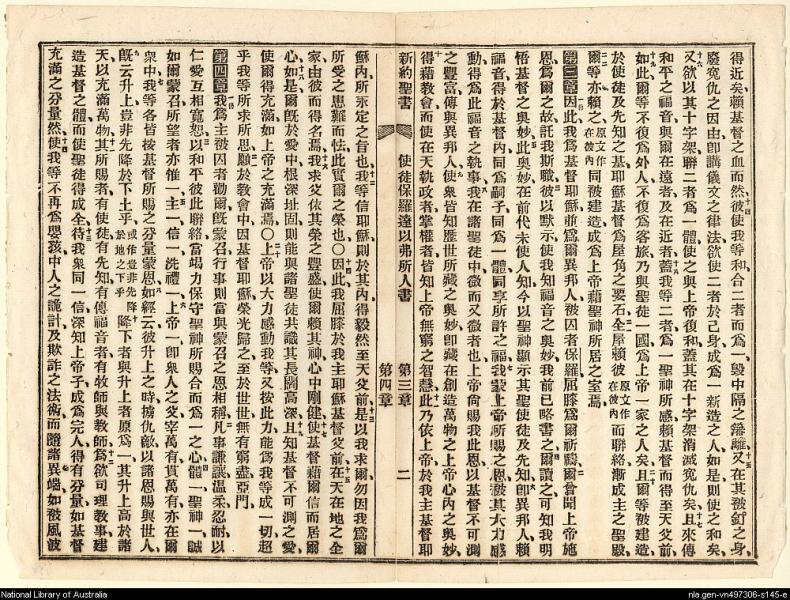 得近矣賴基督之血而然彼使我等和合二者而爲一毀中隔之籓籬又在其被釘之身
廢寃仇之因由卽誡儀文之律法欲使二者於己身成爲一新造之人如是則使之和矣
又欲以其十字架聯二者爲一體使之與上帝復和蓋其在十字架消滅寃仇矣且來傳
和平之福音與爾在遠者及在近者蓋我等二者爲一聖神所感賴基督而得至天父前
如此爾等不復爲外人不復爲客旅乃與聖徒一國爲上帝一家之人矣且爾等被建造
於使徒及先知之基耶穌基督爲屋角之要石全屋賴彼原文作在彼內而聯絡漸成主之聖殿
爾等亦賴之原文作在彼內同被建造成爲上帝藉聖神所居之室焉
第三章因此我爲基督耶穌並爲爾異邦人被囚者保羅屈膝爲爾祈禱爾曾聞上帝施
恩爲爾之故託我斯職彼以默示使我知福音之奧妙我前已略書之爾讀之可知我明
悟基督之奧妙此奧妙在前代未使人知今以聖神顯示其聖使徒及先知卽異邦人賴
福音得於基督內同爲嗣子同爲一體同享所許之福我蒙上帝所賜之恩被其大力感
動得爲此福音之執事我在諸聖徒中微而又微者也上帝尙賜我此恩以基督不可測
之豐富傳與異邦人使衆皆知歷世所藏之奧妙卽藏在創造萬物之上帝心內之奧妙
得藉教會而使在天執政者掌權者皆知上帝無窮之智慧此乃依上帝於我主基督耶
新約聖書 使徒保羅達以弗所人書 第三章 第四章 二
穌內所永定之旨也我等信耶穌則於其內得毅然至天父前是以我求爾勿因我爲爾
所受之患難而怯此實爾之榮也〇因此我屈膝於我主耶穌基督父前在天在地之全
家由彼而得名焉我求父依其榮之豐盛使爾賴其神心中剛健使基督藉爾信而居爾
心如是爾旣於愛中根深址固則能與諸聖徒共識其長闊高深且知基督不可測之愛
使爾得充滿如上帝之充滿焉〇上帝以大力感動我等又按此力能爲我等成一切超
乎我等所求所思願於教會中因基督耶穌榮光歸之至於世世無有窮盡亞門
第四章我爲主被囚者勸爾旣蒙召行事則當與蒙召之恩相稱凡事謙讓溫柔忍耐以
仁愛互相寬恕以和平彼此聯絡當竭力保守聖神所賜合而爲一之心體一聖神一誠
如爾蒙召所望者亦惟一主一信一洗禮一上帝一卽衆人之父宰萬有貫萬有亦在爾
衆中我等各皆按基督所賜之分量蒙恩如經云彼升上之時擄仇敵以諸恩賜與世人
旣云升上豈非先降於下土乎或作豈非先降於地之下乎降下者與升上者原爲一其升上高於諸
天以充滿萬物其所賜者有使徒有先知有傳福音者有牧師與教師爲欲司理教事建
造基督之體而使聖徒得成全待我衆同一信深知上帝子成爲完人得有分量如基督
充滿之分量然使我等不再爲嬰孩中人之詭計及欺詐之法術而隨諸異端如被風波
National Library of Australia
nla.gen-vn497306-s145-e